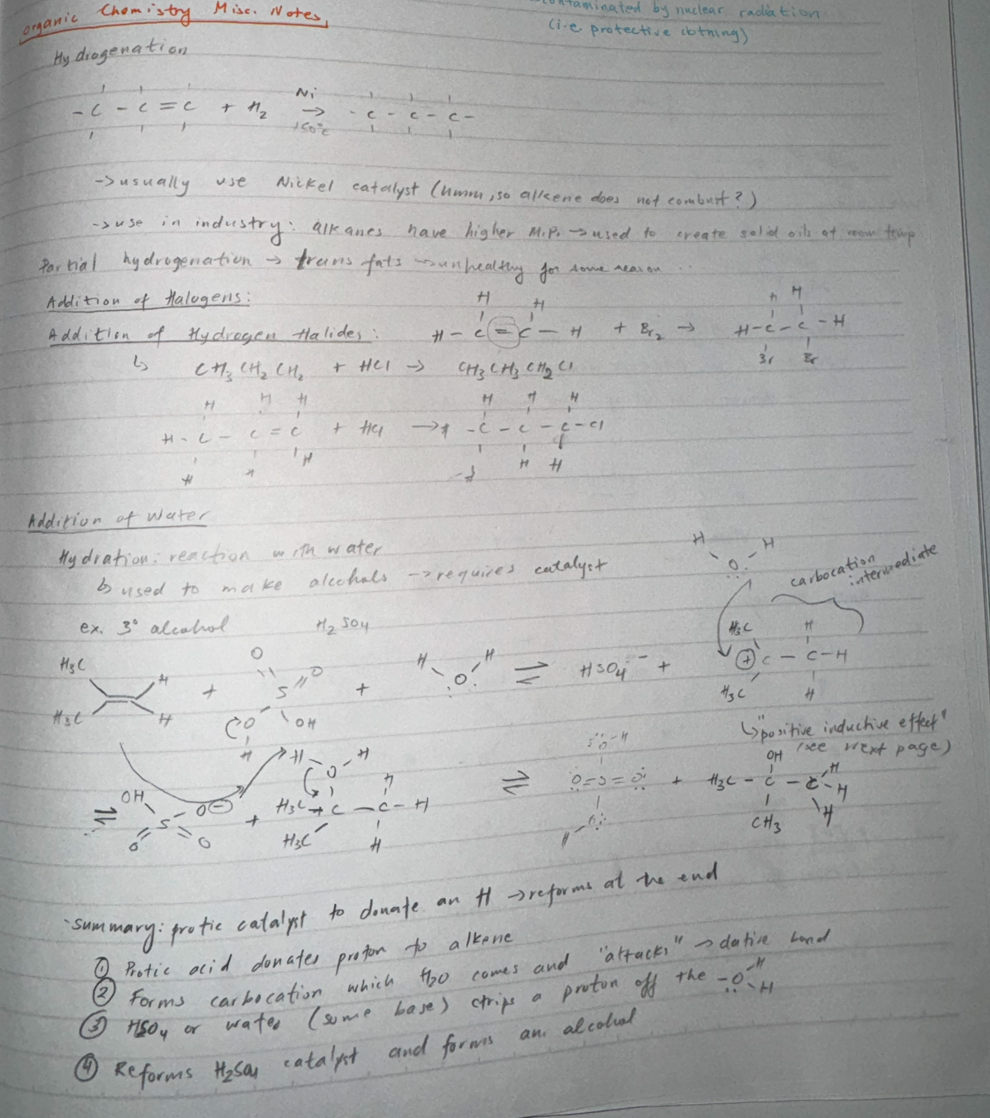 Organic Chemistry Misc. Notes
contaminated by nuclear radiation
(i.e. protective clothing)
Hydrogenation
-C - C = C + H2 Ni → 150°C -C - C - C-
→ usually use Nickel catalyst (hmm, so alkene does not combust?)
→ use in industry: alkanes have higher M.P. → used to create solid oils at room temp
Partial hydrogenation → trans fats → unhealthy for some reason ..
Addition of Halogens:
H H H H
Addition of Hydrogen Halides: H - C = C - H + Br2 → H-C-C-H
Br Br
↳ CH3 CH2 CH2 + HCl → CH3 CH3 CH2 Cl
H H H H H H
H - C - C = C + HCl → H - C - C - C - Cl
H H H H H
Addition of Water
Hydration: reaction with water
↳ used to make alcohols → requires catalyst
H O H
carbocation intermediate
ex. 3° alcohol H2SO4
H3C H3C H H + O S O O OH H + H O H ⇌ HSO4 - + H3C H3C ⊕ C - C - H H H
↳ "positive inductive effect"
(see next page)
⇌ OH S O⊖ O O + H O H H3C C H3C C - H H H ⇌ O-H O=S=O O H + H3C - C - C OH CH3 H H H
- summary: protic catalyst to donate an H → reforms at the end
① Protic acid donates proton to alkene
② Forms carbocation which H2O comes and "attacks" → dative bond
③ HSO4 or water (some base) strips a proton off the -O H H
④ Reforms H2SO4 catalyst and forms an alcohol